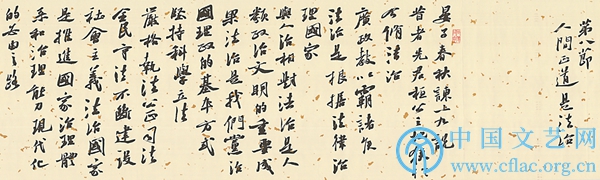 第八節
人間正道是法治
晏子春秋諫上九說
昔者先君桓公之地狹
今脩法治
廣政教以霸諸侯
法治是根據法律治
理國家
與人治相對法治是人
類政治文明的重要成
果法治是我們黨治
國理政的基本方式
堅持科學立法
嚴格執法公正司法
全民守法不斷建設
社會主義法治國家
是推進國家治理體
系和治理能力現代化
的必由之路
中国文艺网
www.cflac.org.cn